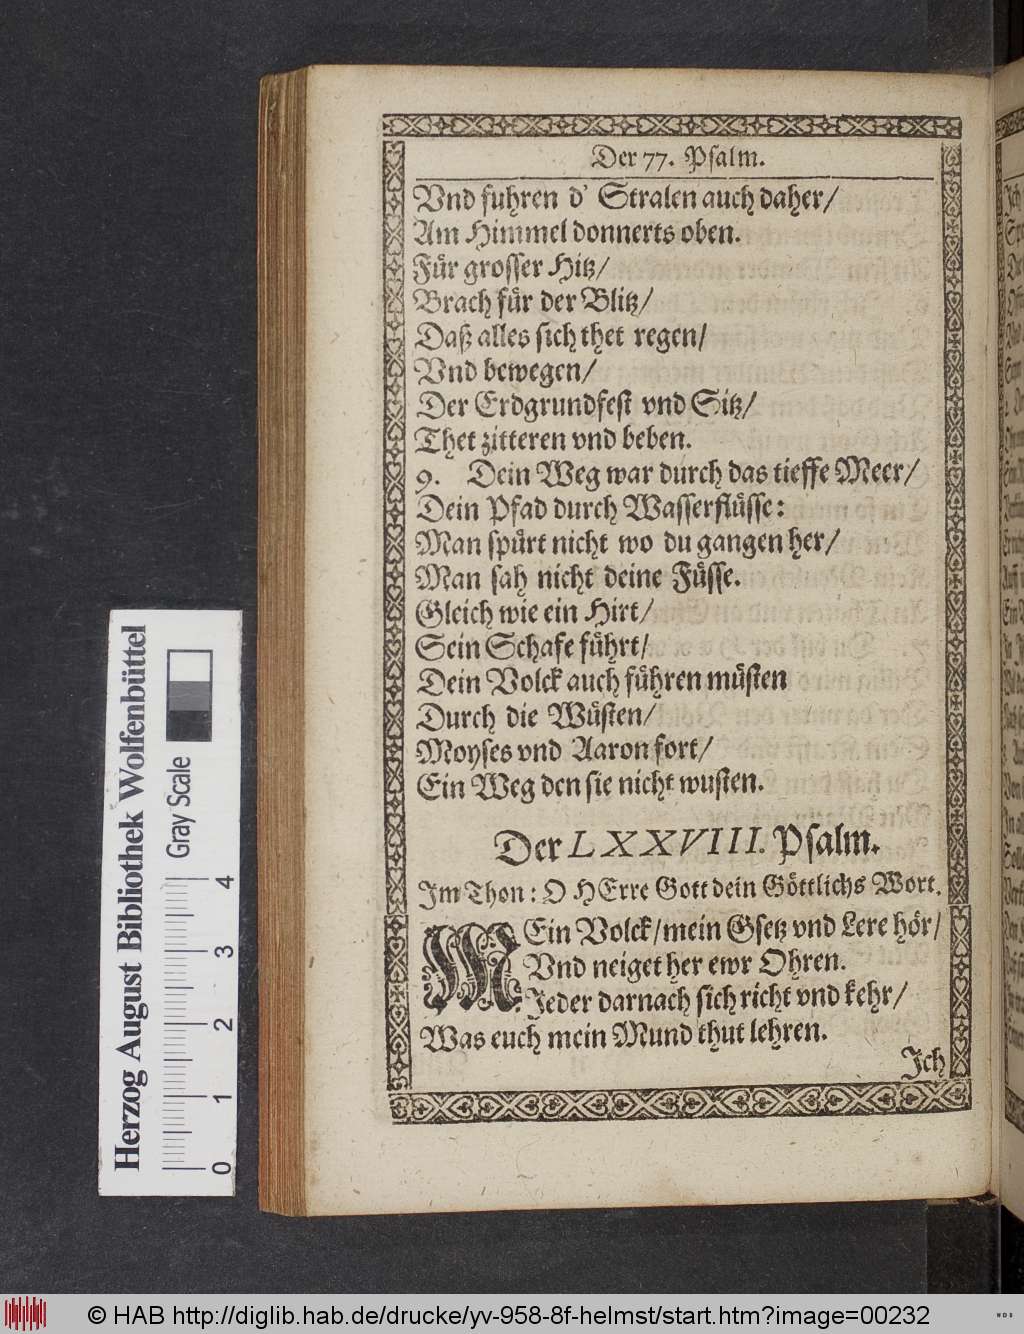 Der 77. Psalm.
Vnd fuhren d' Stralen auch daher/
Am Himmel donnerts oben.
Für grosser Hitz/
Brach für der Blitz/
Daß alles sich thet regen/
Vnd bewegen/
Der Erdgrundfest vnd Sitz/
Thet zitteren vnd beben.
9. Dein Weg war durch das tieffe Meer/
Dein Pfad durch Wasserflüsse:
Man spürt nicht wo du gangen her/
Man sah nicht deine Füsse.
Gleich wie ein Hirt/
Sein Schafe führt/
Dein Volck auch führen müsten
Durch die Wüsten/
Moyses vnd Aaron fort/
Ein Weg den sie nicht wusten.
Der LXXVIII. Psalm.
Im Thon: O HErre Gott dein Göttlichs Wort.
MEin Volck/mein Gsetz vnd Lere hör/
Vnd neiget her ewr Ohren.
Jeder darnach sich richt vnd kehr/
Was euch mein Mund thut lehren.
Jch
Herzog August Bibliothek Wolfenbüttel
Gray Scale
0 1 2 3 4
© HAB http://diglib.hab.de/drucke/yv-958-8f-helmst/start.htm?image=00232